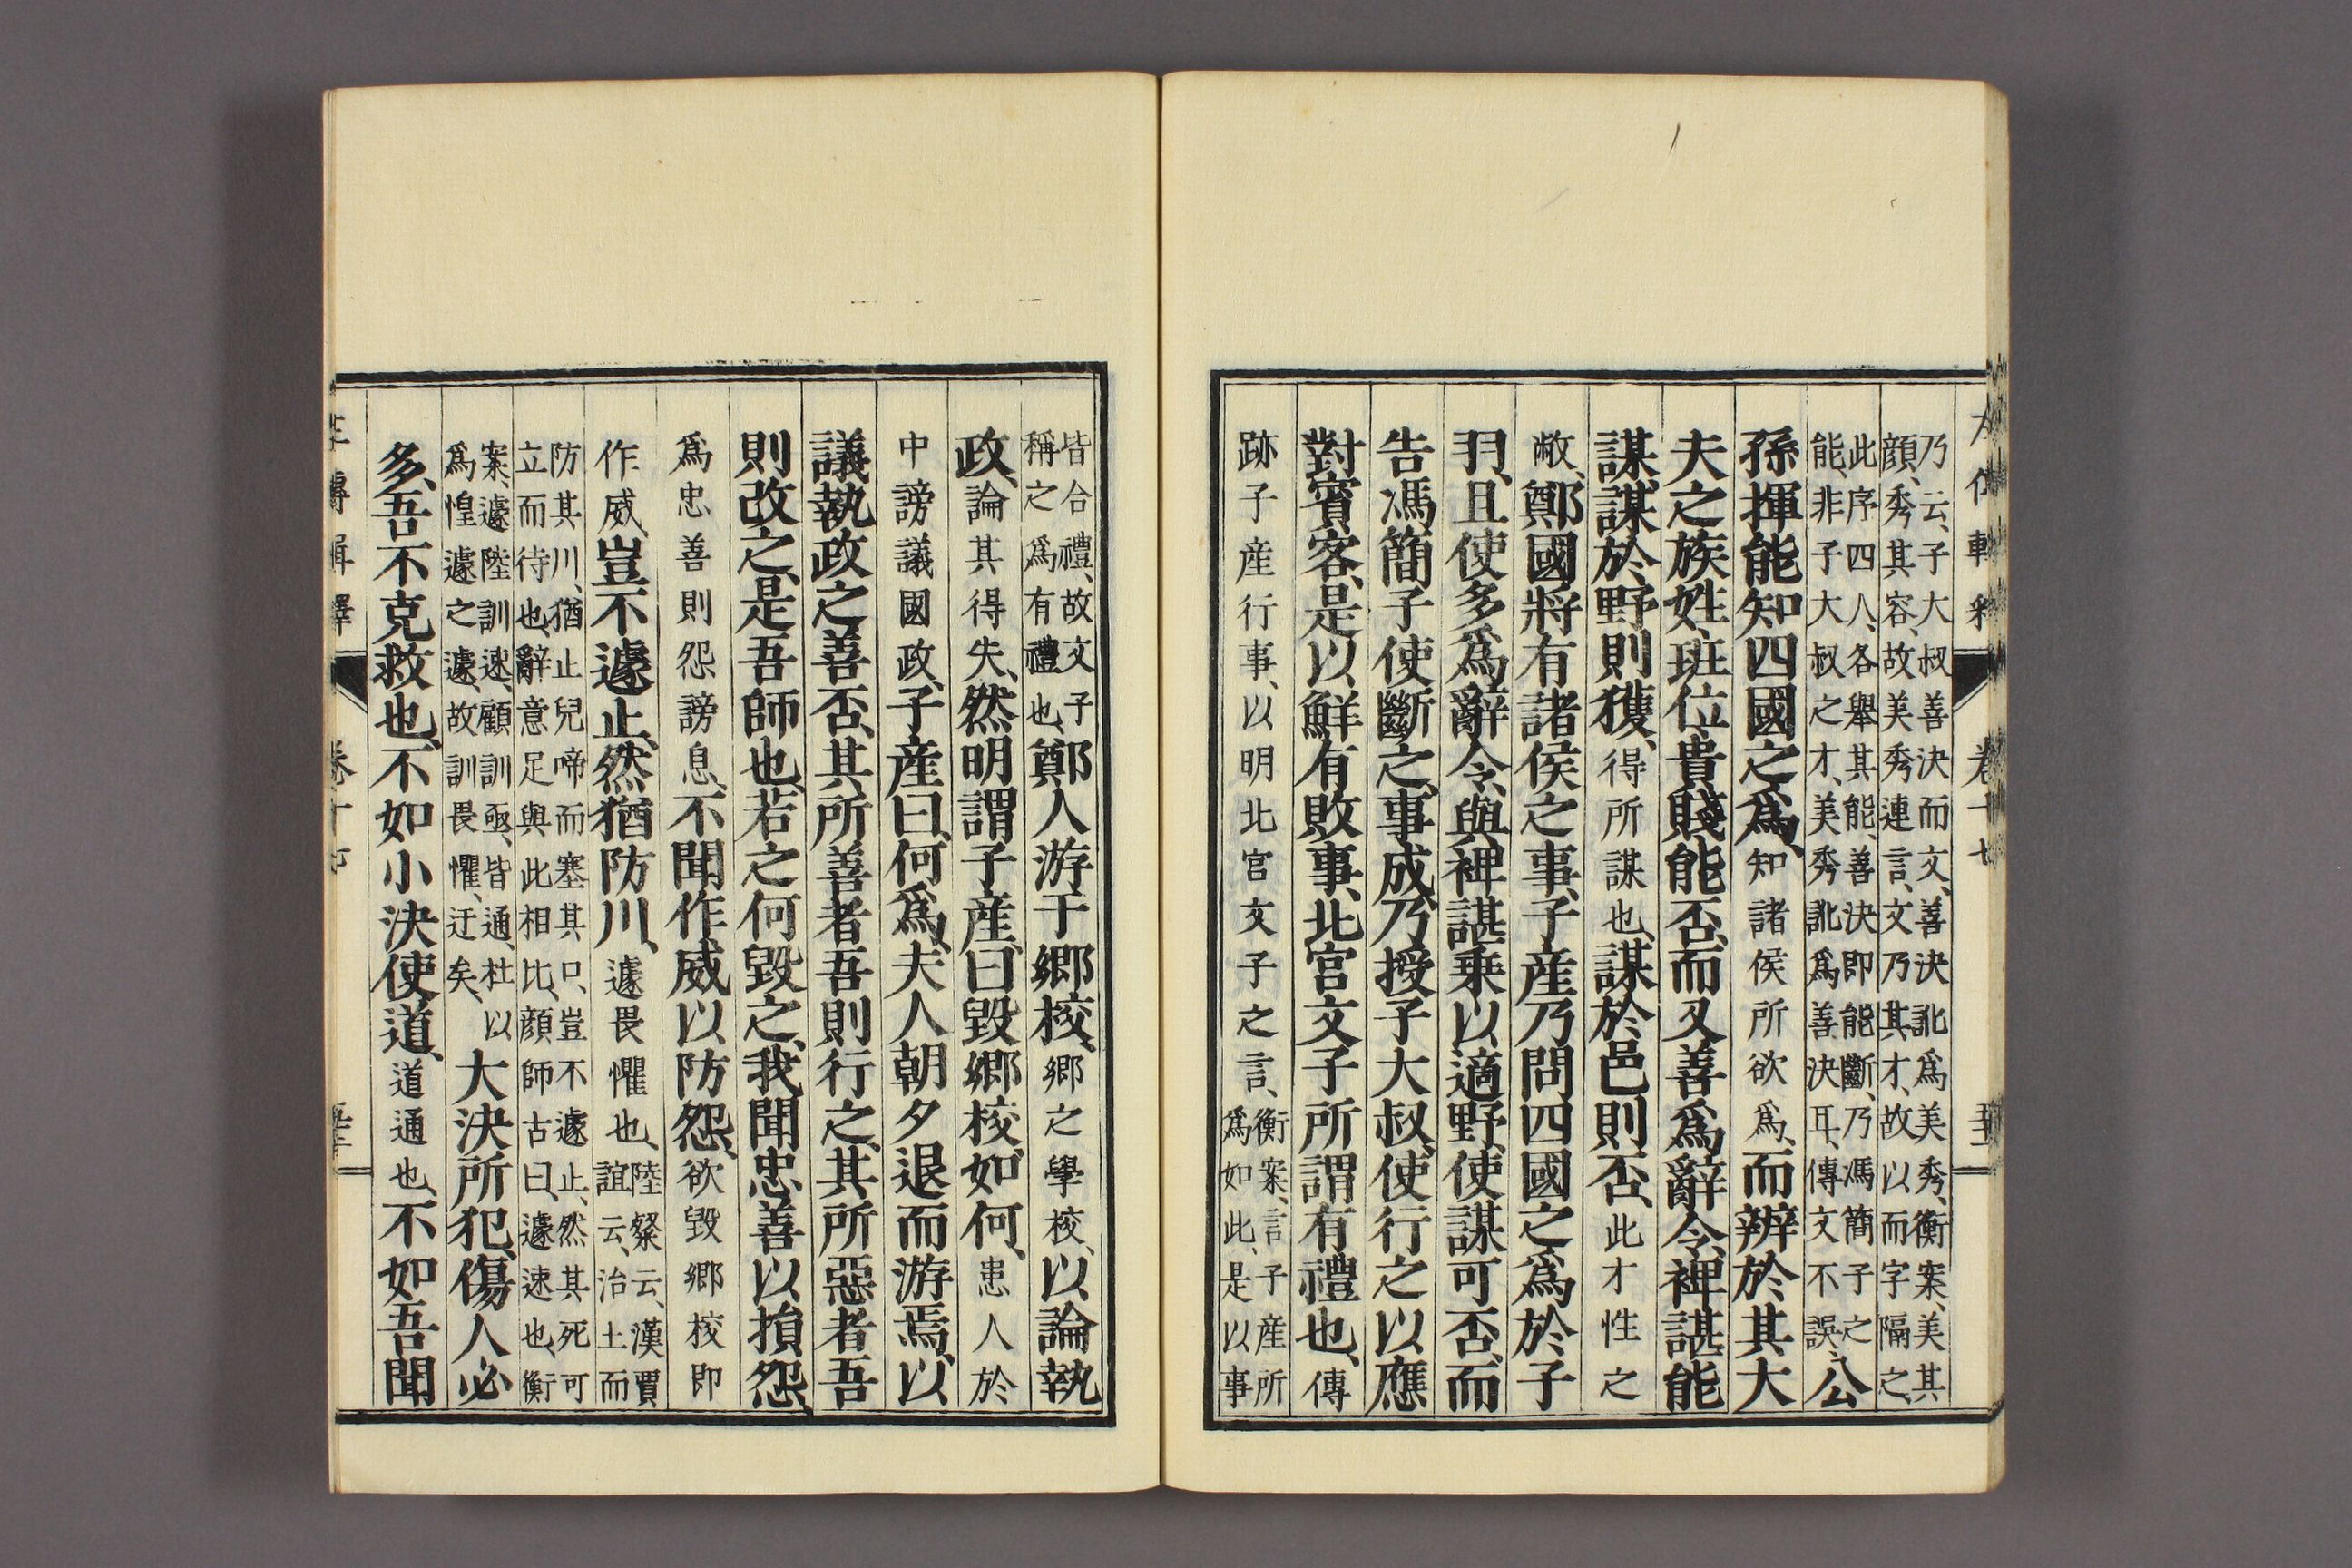 乃云、子大叔善決而文、善決訛爲美秀、衡案、美其
顏、秀其容、故美秀連言、文乃其才、故以而字隔之、
此序四人、各舉其能、善決即能斷、乃馮簡子之
能、非子大叔之才、美秀訛爲善決耳、傳文不誤、公
孫揮能知四國之爲、知諸侯所欲爲、而辨於其大
夫之族姓、班位、貴賤、能否、而又善爲辭令、裨諶能
謀、謀於野則獲、得所謀也、謀於邑則否、此才性之
敝、鄭國將有諸侯之事、子産乃問四國之爲於子
羽、且使多爲辭令、與裨諶乘以適野、使謀可否、而
告馮簡子使斷之、事成、乃授子大叔、使行之以應
對賓客、是以鮮有敗事、北宮文子所謂有禮也、傳
跡子産行事、以明北宮文子之言、衡案、言子産所
爲如此、是以事
皆合禮、故文子
稱之爲有禮也、鄭人游于鄉校、鄉之學校、以論執
政、論其得失、然明謂子産曰、毀鄉校如何、患人於
中謗議國政、子産曰、何爲、夫人朝夕退而游焉、以
議執政之善否、其所善者吾則行之、其所惡者吾
則改之、是吾師也、若之何毀之、我聞忠善以損怨、
爲忠善則怨謗息、不聞作威以防怨、欲毀鄉校即
作威、豈不遽止、然猶防川、遽畏懼也、陸粲云、漢賈
誼云、治土而
防其川、猶止兒啼而塞其口、豈不遽止、然其死可
立而待也、辭意足與此相比、顏師古曰、遽速也、衡
案、遽陸訓速、顧訓亟、皆通、杜以
爲惶遽之遽、故訓畏懼、迂矣、大決所犯、傷人必
多、吾不克救也、不如小決使道、道通也、不如吾聞